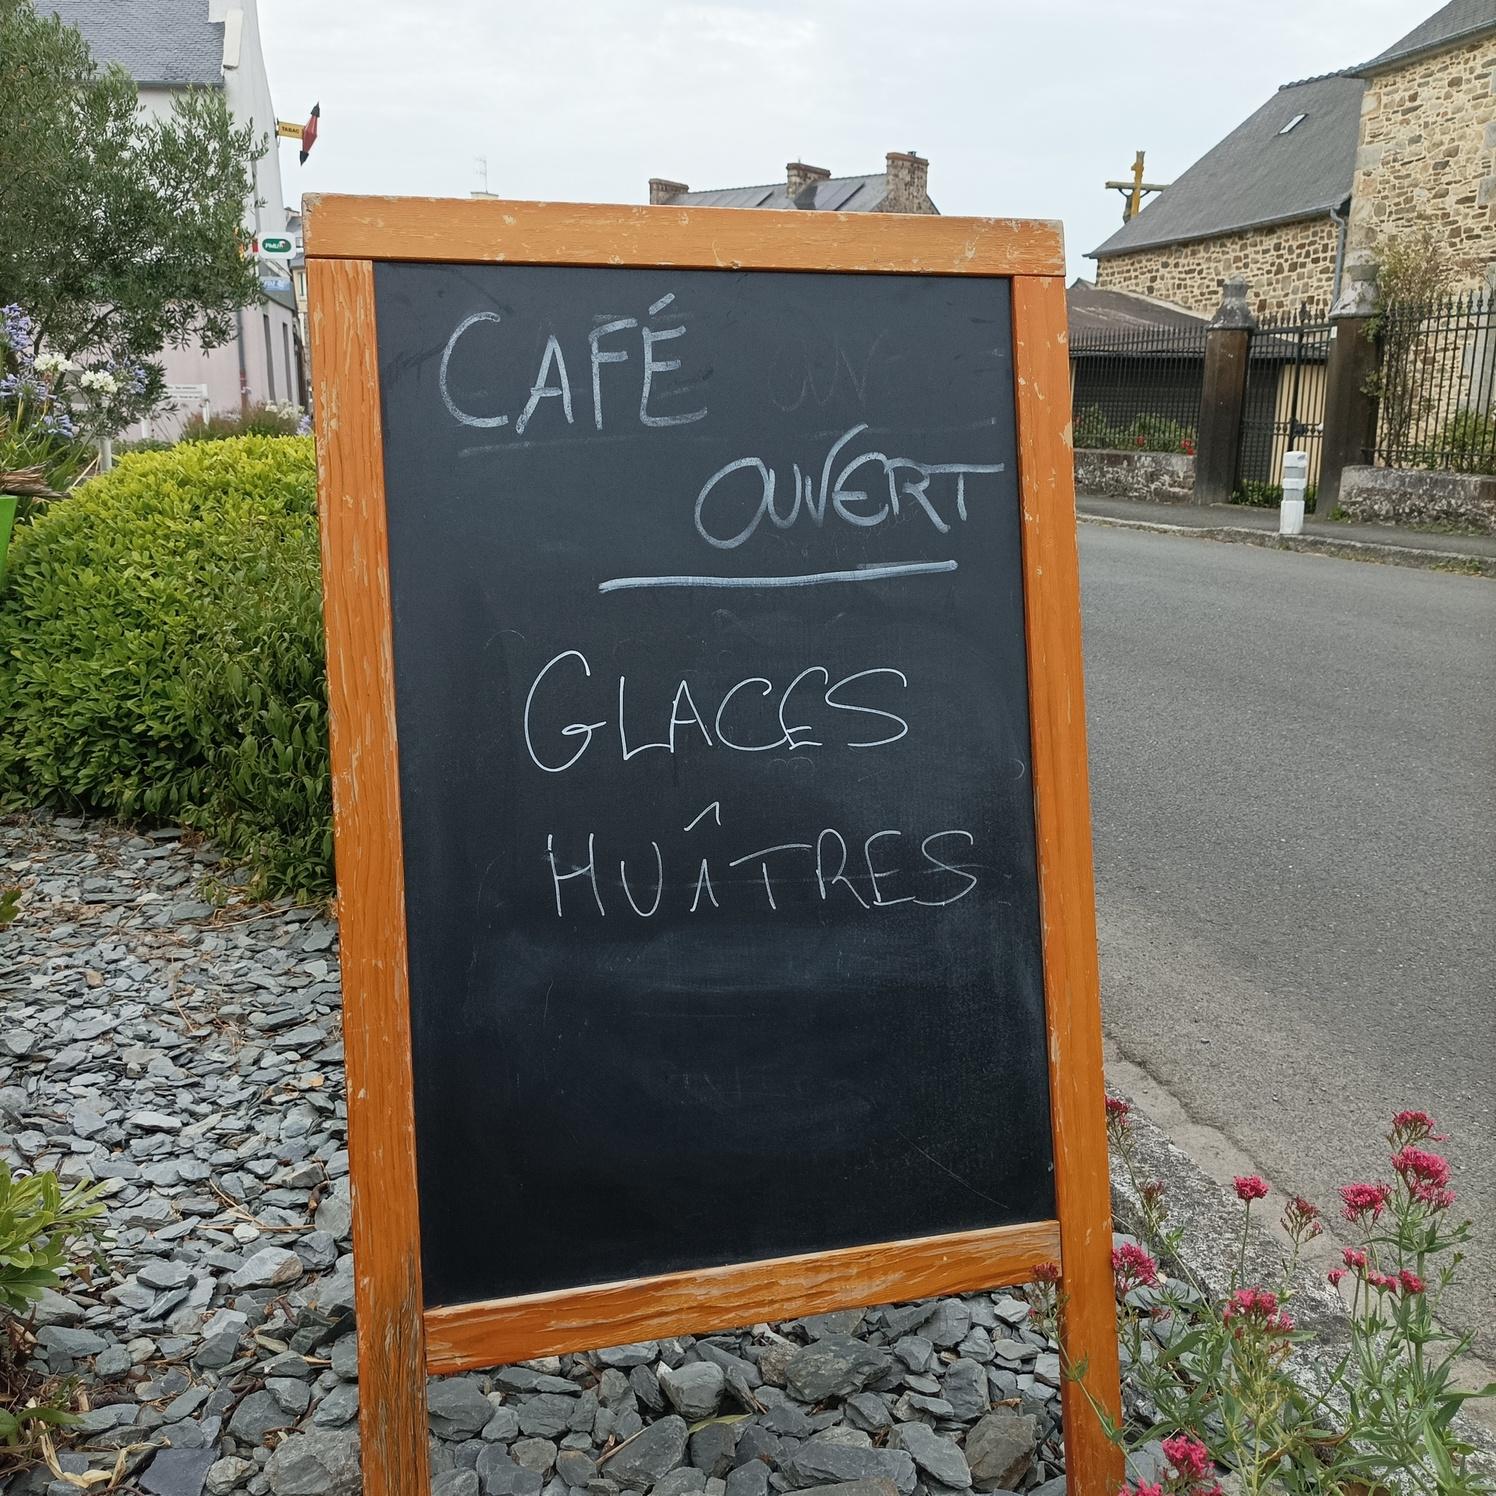 TABAC
PMU
CAFÉ
OUVERT
GLACES
HUÎTRES